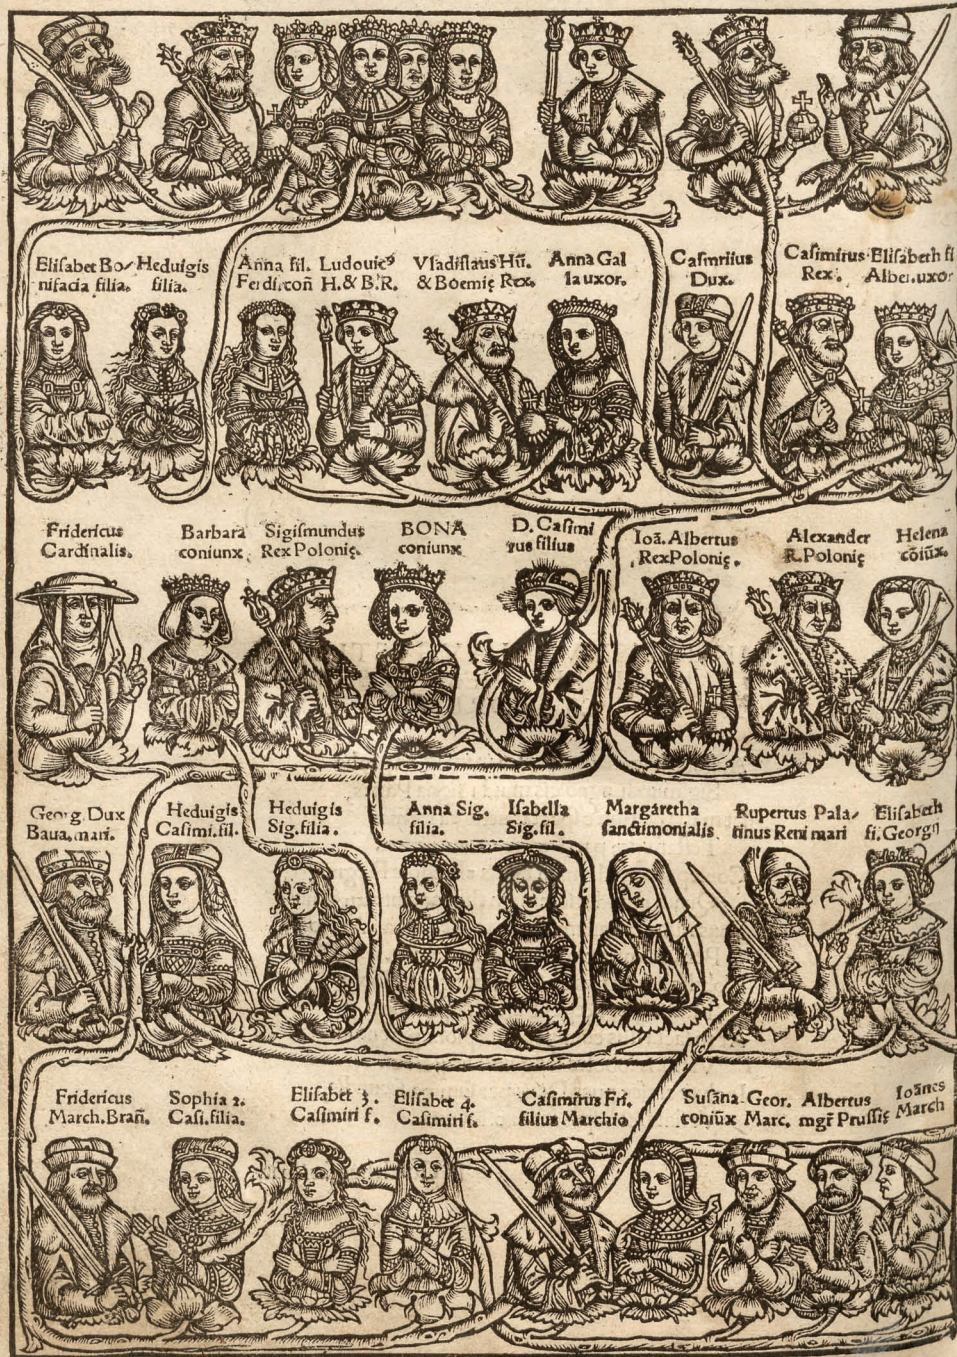 Elisabet Bo-
nifacia filia.
Heduigis
filia.
Anna fil.
Ferdi. coñ
Ludouicꝰ
H. & B. R.
Vladislaus Hũ.
& Boemię Rex.
Anna Gal
la uxor.
Casmriius
Dux.
Casimirus
Rex.
Elisabeth fi
Alber. uxor
Fridericus
Cardinalis.
Barbara
coniunx
Sigismundus
Rex Polonię.
BONA
coniunx
D. Casimi
rus filius
Ioā. Albertus
Rex Polonię.
Alexander
R. Polonię
Helena
cõiũx.
Georg. Dux
Baua. mari.
Heduigis
Casimi. fil.
Heduigis
Sig. filia.
Anna Sig.
filia.
Isabella
Sig. fil.
Margaretha
sanctimonialis
Rupertus Pala-
tinus Reni mari
Elisabeth
fi. Georgii
Fridericus
March. Brañ.
Sophia 2.
Casi. filia.
Elisabet 3.
Casimiri f.
Elisabet 4.
Casimiri f.
Casimirus Fri.
filius Marchio
Susāna
coniũx
Geor.
Marc.
Albertus
mgr̄ Prussię
Ioānes
March